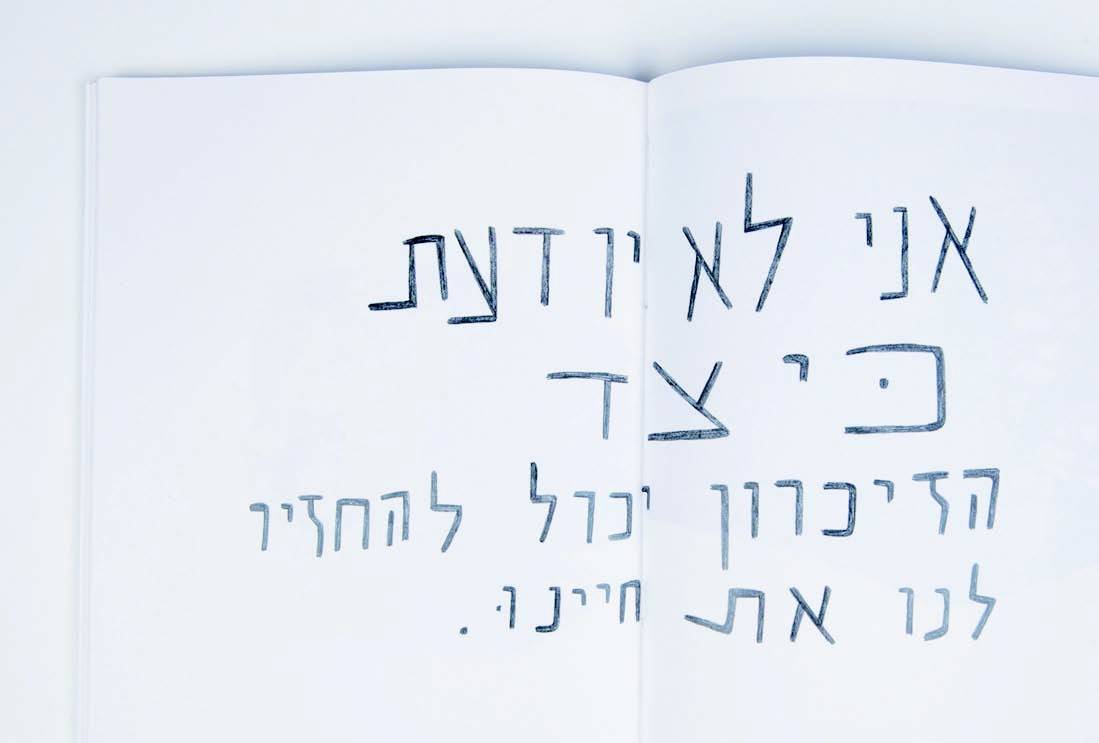 אני לא יודעת
כּיצד
הזיכרון יכול להחזיר
לנו את חיינוּ.